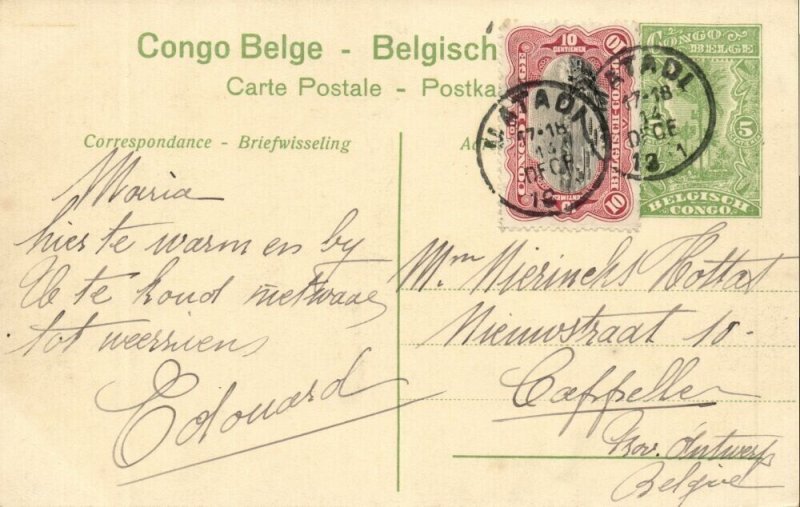 Congo Belge - Belgisch
Carte Postale - Postka
Correspondance - Briefwisseling
Ad
CONGO BELGE
5
BELGISCH CONGO
10 CENTIEMEN 10
CONGO BELGE
BELGISCH-CONGO
10 CENTIMES 10
MATADI
17-18
14
DECE
MATADI
17-18
14
DECE
Maria
hier te warm en by
U te koud nietwaar
tot weerziens
Edouard
Mm Nierincks Hottat
Nieuwstraat 10-
Cappellen
Prov. Antwerp
Belgique